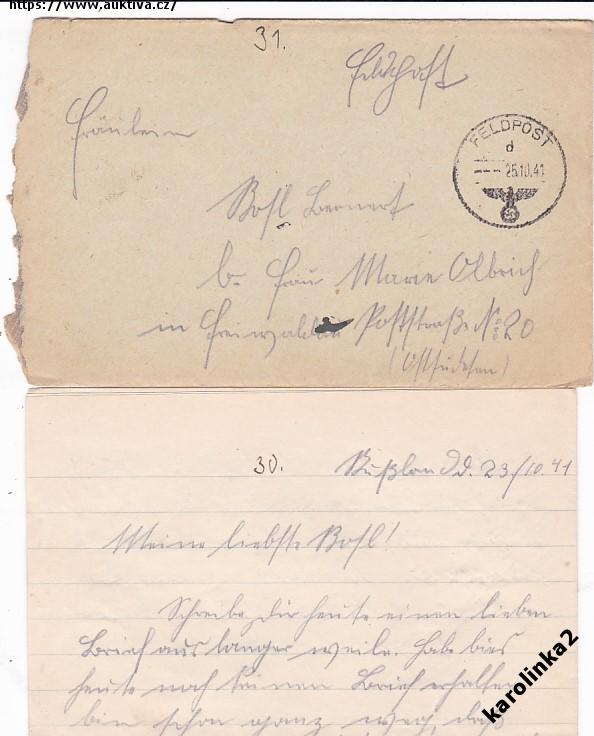 https://www.auktiva.cz/
31.
Feldpost
Fräulein
FELDPOST
d
26.10.41
Rosl Bernert
b. Frau Marie Olbrich
in Freiwaldau Poststraße No: 20
(Ostsudeten)
30.
Rußland d. 23/10.41
Meine liebste Rosl!
Schreibe Dir heute einen lieben
Brief aus langer weile. Habe bies
heute noch keinen Brief erhalten
bin schon ganz weg, daß
karolinka2